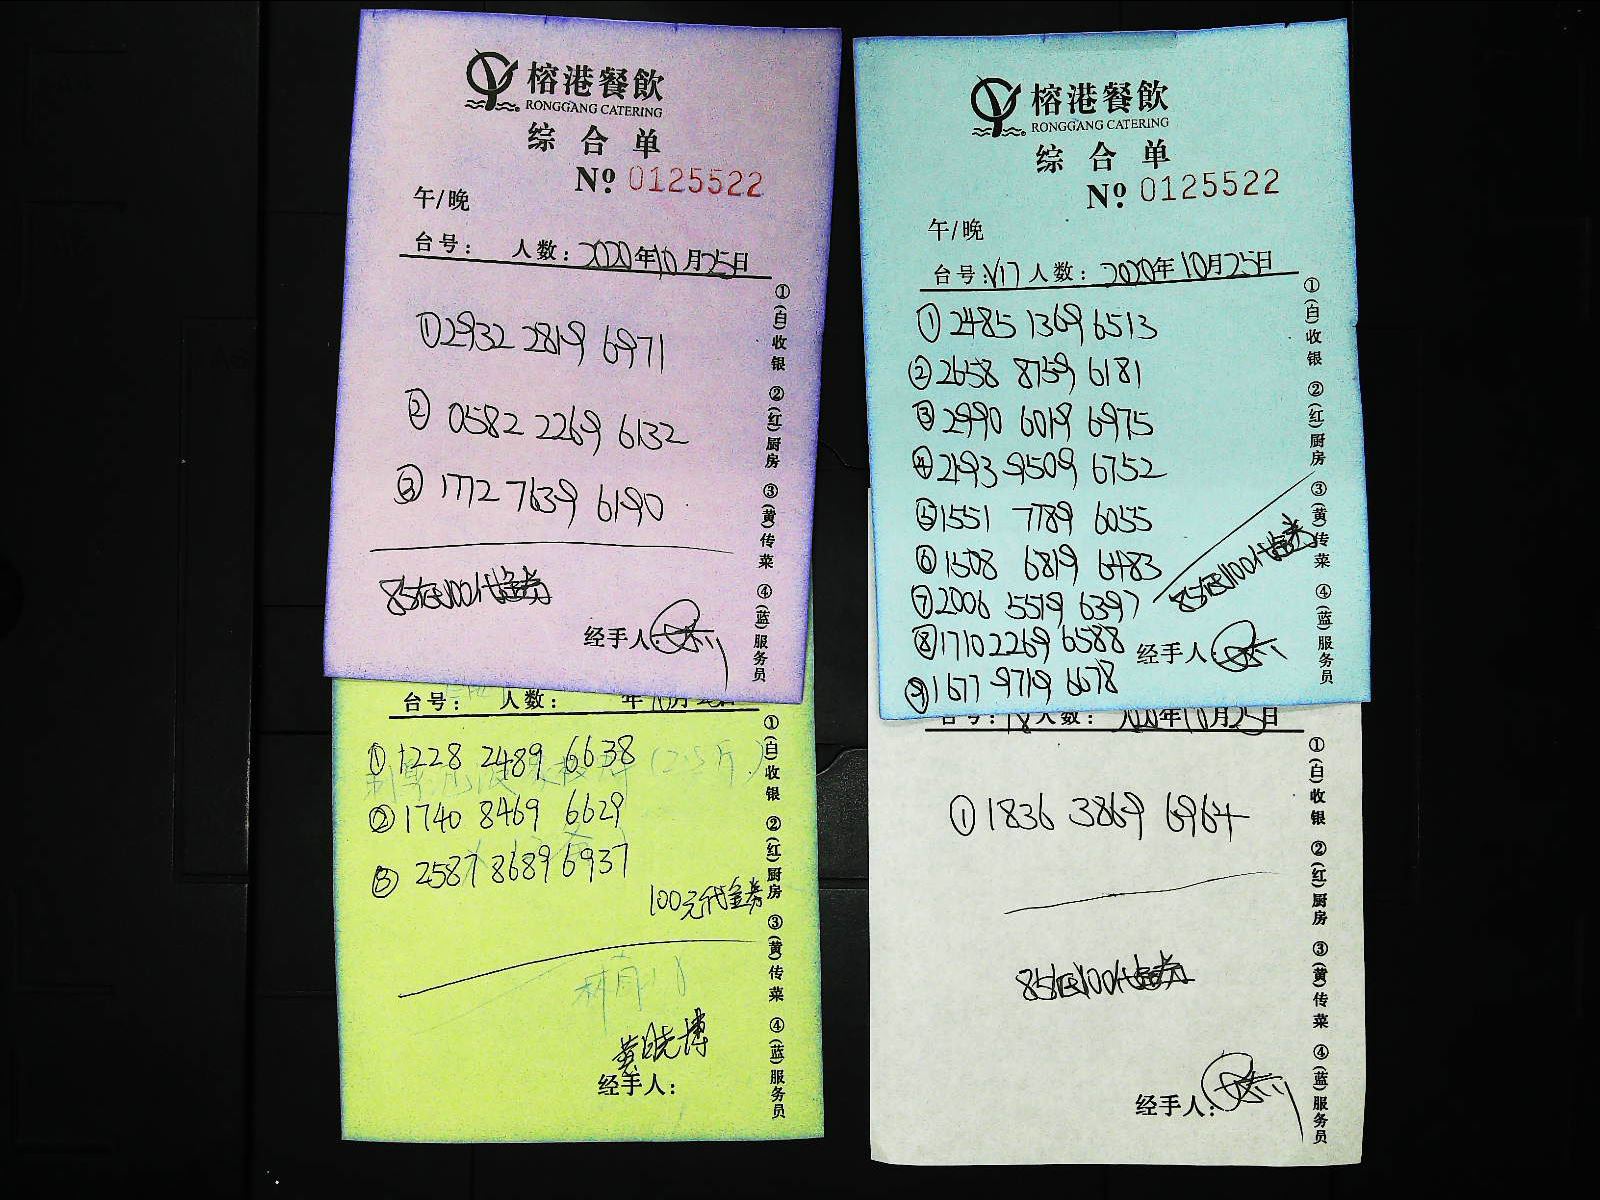 榕港餐飲
RONGGANG CATERING
综合单
Nº 0125522
午/晚
台号: 人数: 2020年10月25日
①2932 2819 6971
② 0582 2269 6132
③ 1772 7639 6190
85抵100代金券
经手人:
①(白)收银 ②(红)厨房 ③(黄)传菜 ④(蓝)服务员
榕港餐飲
RONGGANG CATERING
综合单
Nº 0125522
午/晚
台号:V17 人数: 2020年10月25日
①2485 1369 6513
②2658 8759 6181
③2990 6019 6975
④2193 9509 6752
⑤1551 7789 6055
⑥1508 6819 6483
⑦2006 5519 6397
⑧1710 2269 6588
⑨1677 9719 6678
85抵100代金券
经手人:
①(白)收银 ②(红)厨房 ③(黄)传菜 ④(蓝)服务员
台号: 人数: 年10月25日
①1228 2489 6638
②1740 8469 6629
③ 2587 8689 6937
100元代金券
黄晓博
经手人:
①(白)收银 ②(红)厨房 ③(黄)传菜 ④(蓝)服务员
台号:18 人数: 2020年10月25日
①1836 3869 6964
85抵100代金券
经手人:
①(白)收银 ②(红)厨房 ③(黄)传菜 ④(蓝)服务员